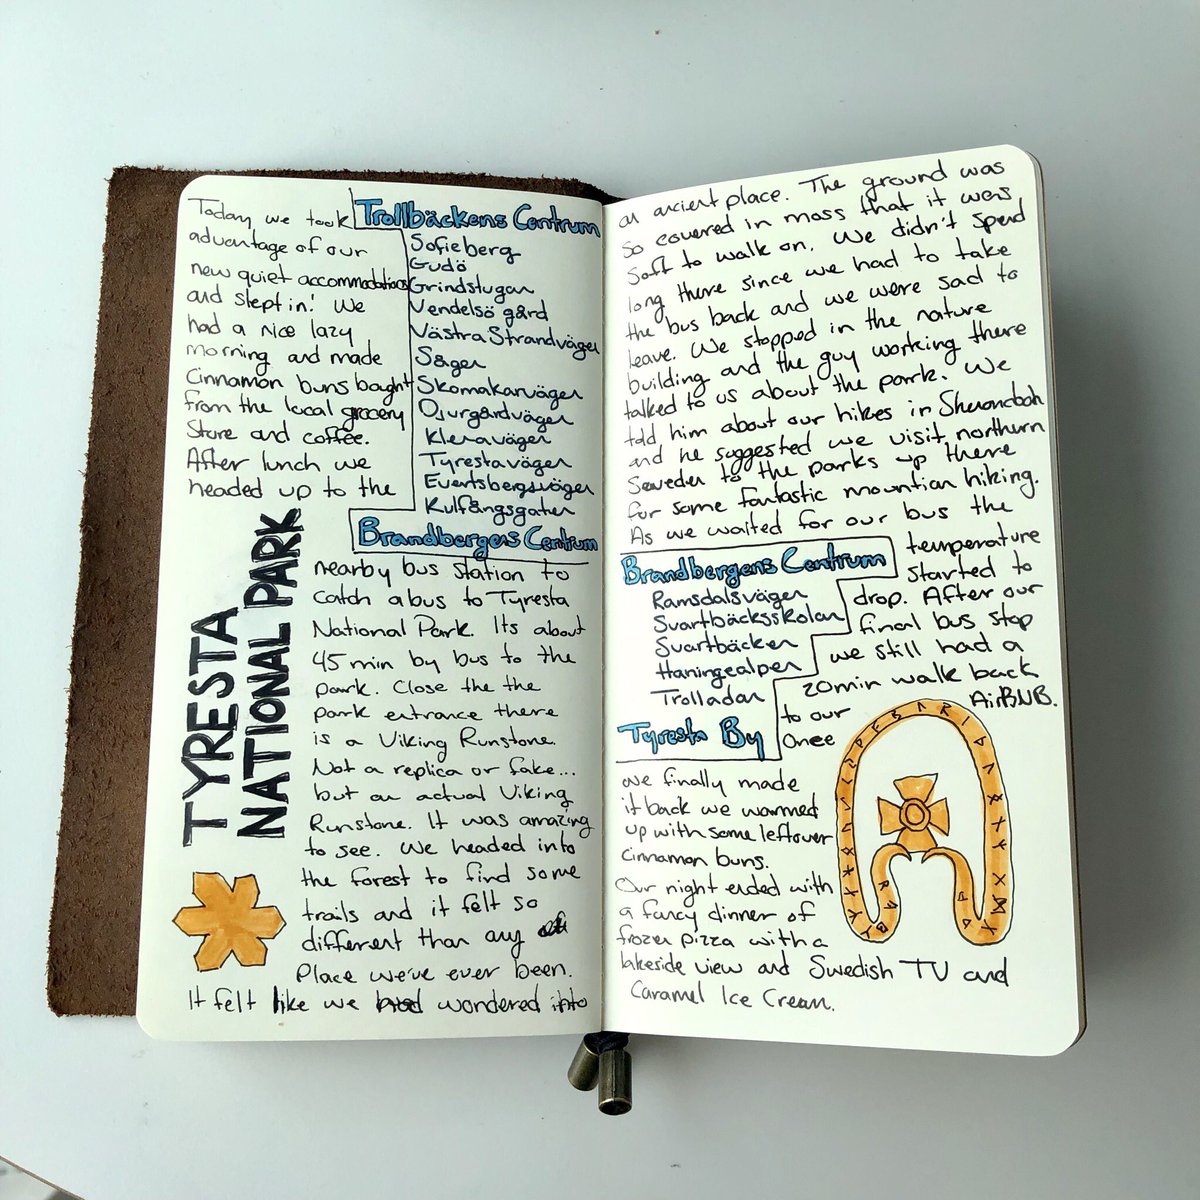 Today we took
advantage of our
new quiet accommodations
and slept in! We
had a nice lazy
morning and made
Cinnamon buns bought
from the local grocery
Store and coffee.
After lunch we
headed up to the
Trollbäckens Centrum
Sofieberg
Gudö
Grindstugan
Vendelsö gård
Västra Strandvägen
Sågen
Skomakarvägen
Djurgårdvägen
Klenavägen
Tyrestavägen
Evertsbergsvägen
Kulfångsgatan
Brandbergens Centrum
TYRESTA
NATIONAL PARK
nearby bus station to
catch a bus to Tyresta
National Park. Its about
45 min by bus to the
park. Close the the
park entrance there
is a Viking Runstone.
Not a replica or fake...
but an actual Viking
Runstone. It was amazing
to see. We headed into
the forest to find some
trails and it felt so
different than any
Place we've ever been.
It felt like we had wondered into
an ancient place. The ground was
so covered in moss that it was
Soft to walk on. We didn't spend
long there since we had to take
the bus back and we were sad to
leave. We stopped in the nature
building and the guy working there
talked to us about the park. We
told him about our hikes in Shenandoah
and he suggested we visit northern
Sweden to the parks up there
for some fantastic mountian hiking.
As we waited for our bus the
temperature
started to
drop. After our
final bus stop
we still had a
20min walk back
to our AirBNB.
Onee
Brandbergens Centrum
Ramsdalsvägen
Svartbäcksskolan
Svartbäcken
Haningealpen
Trolladan
Tyresta By
we finally made
it back we warmed
up with some leftover
cinnamon buns.
Our night ended with
a fancy dinner of
frozen pizza with a
lakeside view and Swedish TV and
Caramel Ice Cream.